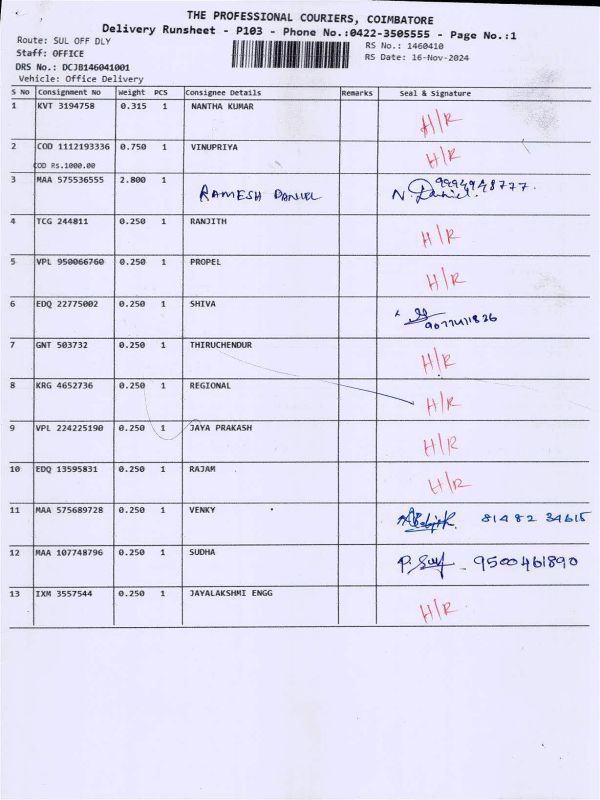 THE PROFESSIONAL COURIERS, COIMBATORE
Delivery Runsheet - P103 - Phone No.:0422-3505555 - Page No.:1
Route: SUL OFF DLY
RS No.: 1460410
Staff: OFFICE
RS Date: 16-Nov-2024
DRS No.: DCJB146041001
Vehicle: Office Delivery
S No Consignment No Weight PCS Consignee Details Remarks Seal & Signature
1 KVT 3194758 0.315 1 NANTHA KUMAR H/R
2 COD 1112193336 0.750 1 VINUPRIYA H/R
COD Rs.1000.00
3 MAA 575536555 2.800 1 RAMESH DANIEL N. Daniel. 9994948777.
4 TCG 244811 0.250 1 RANJITH H/R
5 VPL 950066760 0.250 1 PROPEL H/R
6 EDQ 22775002 0.250 1 SHIVA
7 GNT 503732 0.250 1 THIRUCHENDUR H/R
8 KRG 4652736 0.250 1 REGIONAL H/R
9 VPL 224225190 0.250 1 JAYA PRAKASH H/R
10 EDQ 13595831 0.250 1 RAJAM H/R
11 MAA 575689728 0.250 1 VENKY 81482 34615
12 MAA 107748796 0.250 1 SUDHA 9500461890
13 IXM 3557544 0.250 1 JAYALAKSHMI ENGG H/R